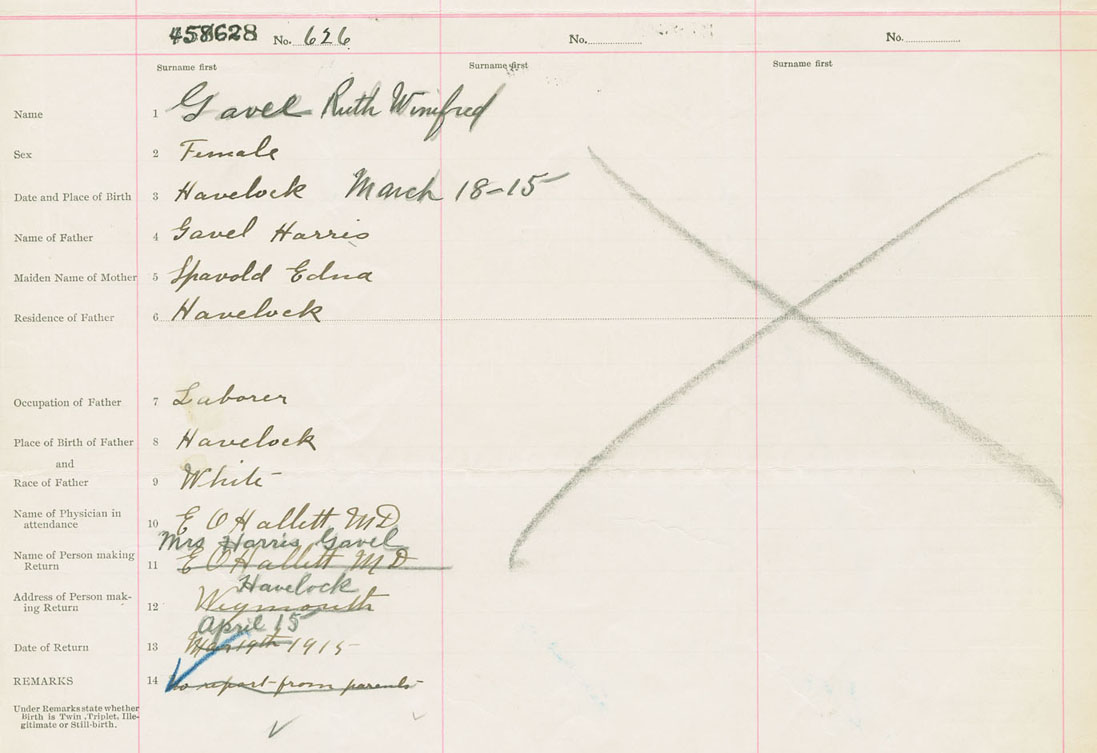 458628 No. 626 No. No.
Surname first Surname first Surname first
Name 1 Gavel Ruth Winifred
Sex 2 Female
Date and Place of Birth 3 Havelock March 18-15
Name of Father 4 Gavel Harris
Maiden Name of Mother 5 Spavold Edna
Residence of Father 6 Havelock
Occupation of Father 7 Laborer
Place of Birth of Father 8 Havelock
and
Race of Father 9 White
Name of Physician in
attendance 10 E O Hallett MD
Mrs Harris Gavel
Name of Person making
Return 11 E O Hallett MD
Havelock
Address of Person mak-
ing Return 12 Weymouth
April 15
Date of Return 13 Mar 19th 1915
REMARKS 14 No report from parents
Under Remarks state whether
Birth is Twin, Triplet, Ille-
gitimate or Still-birth.